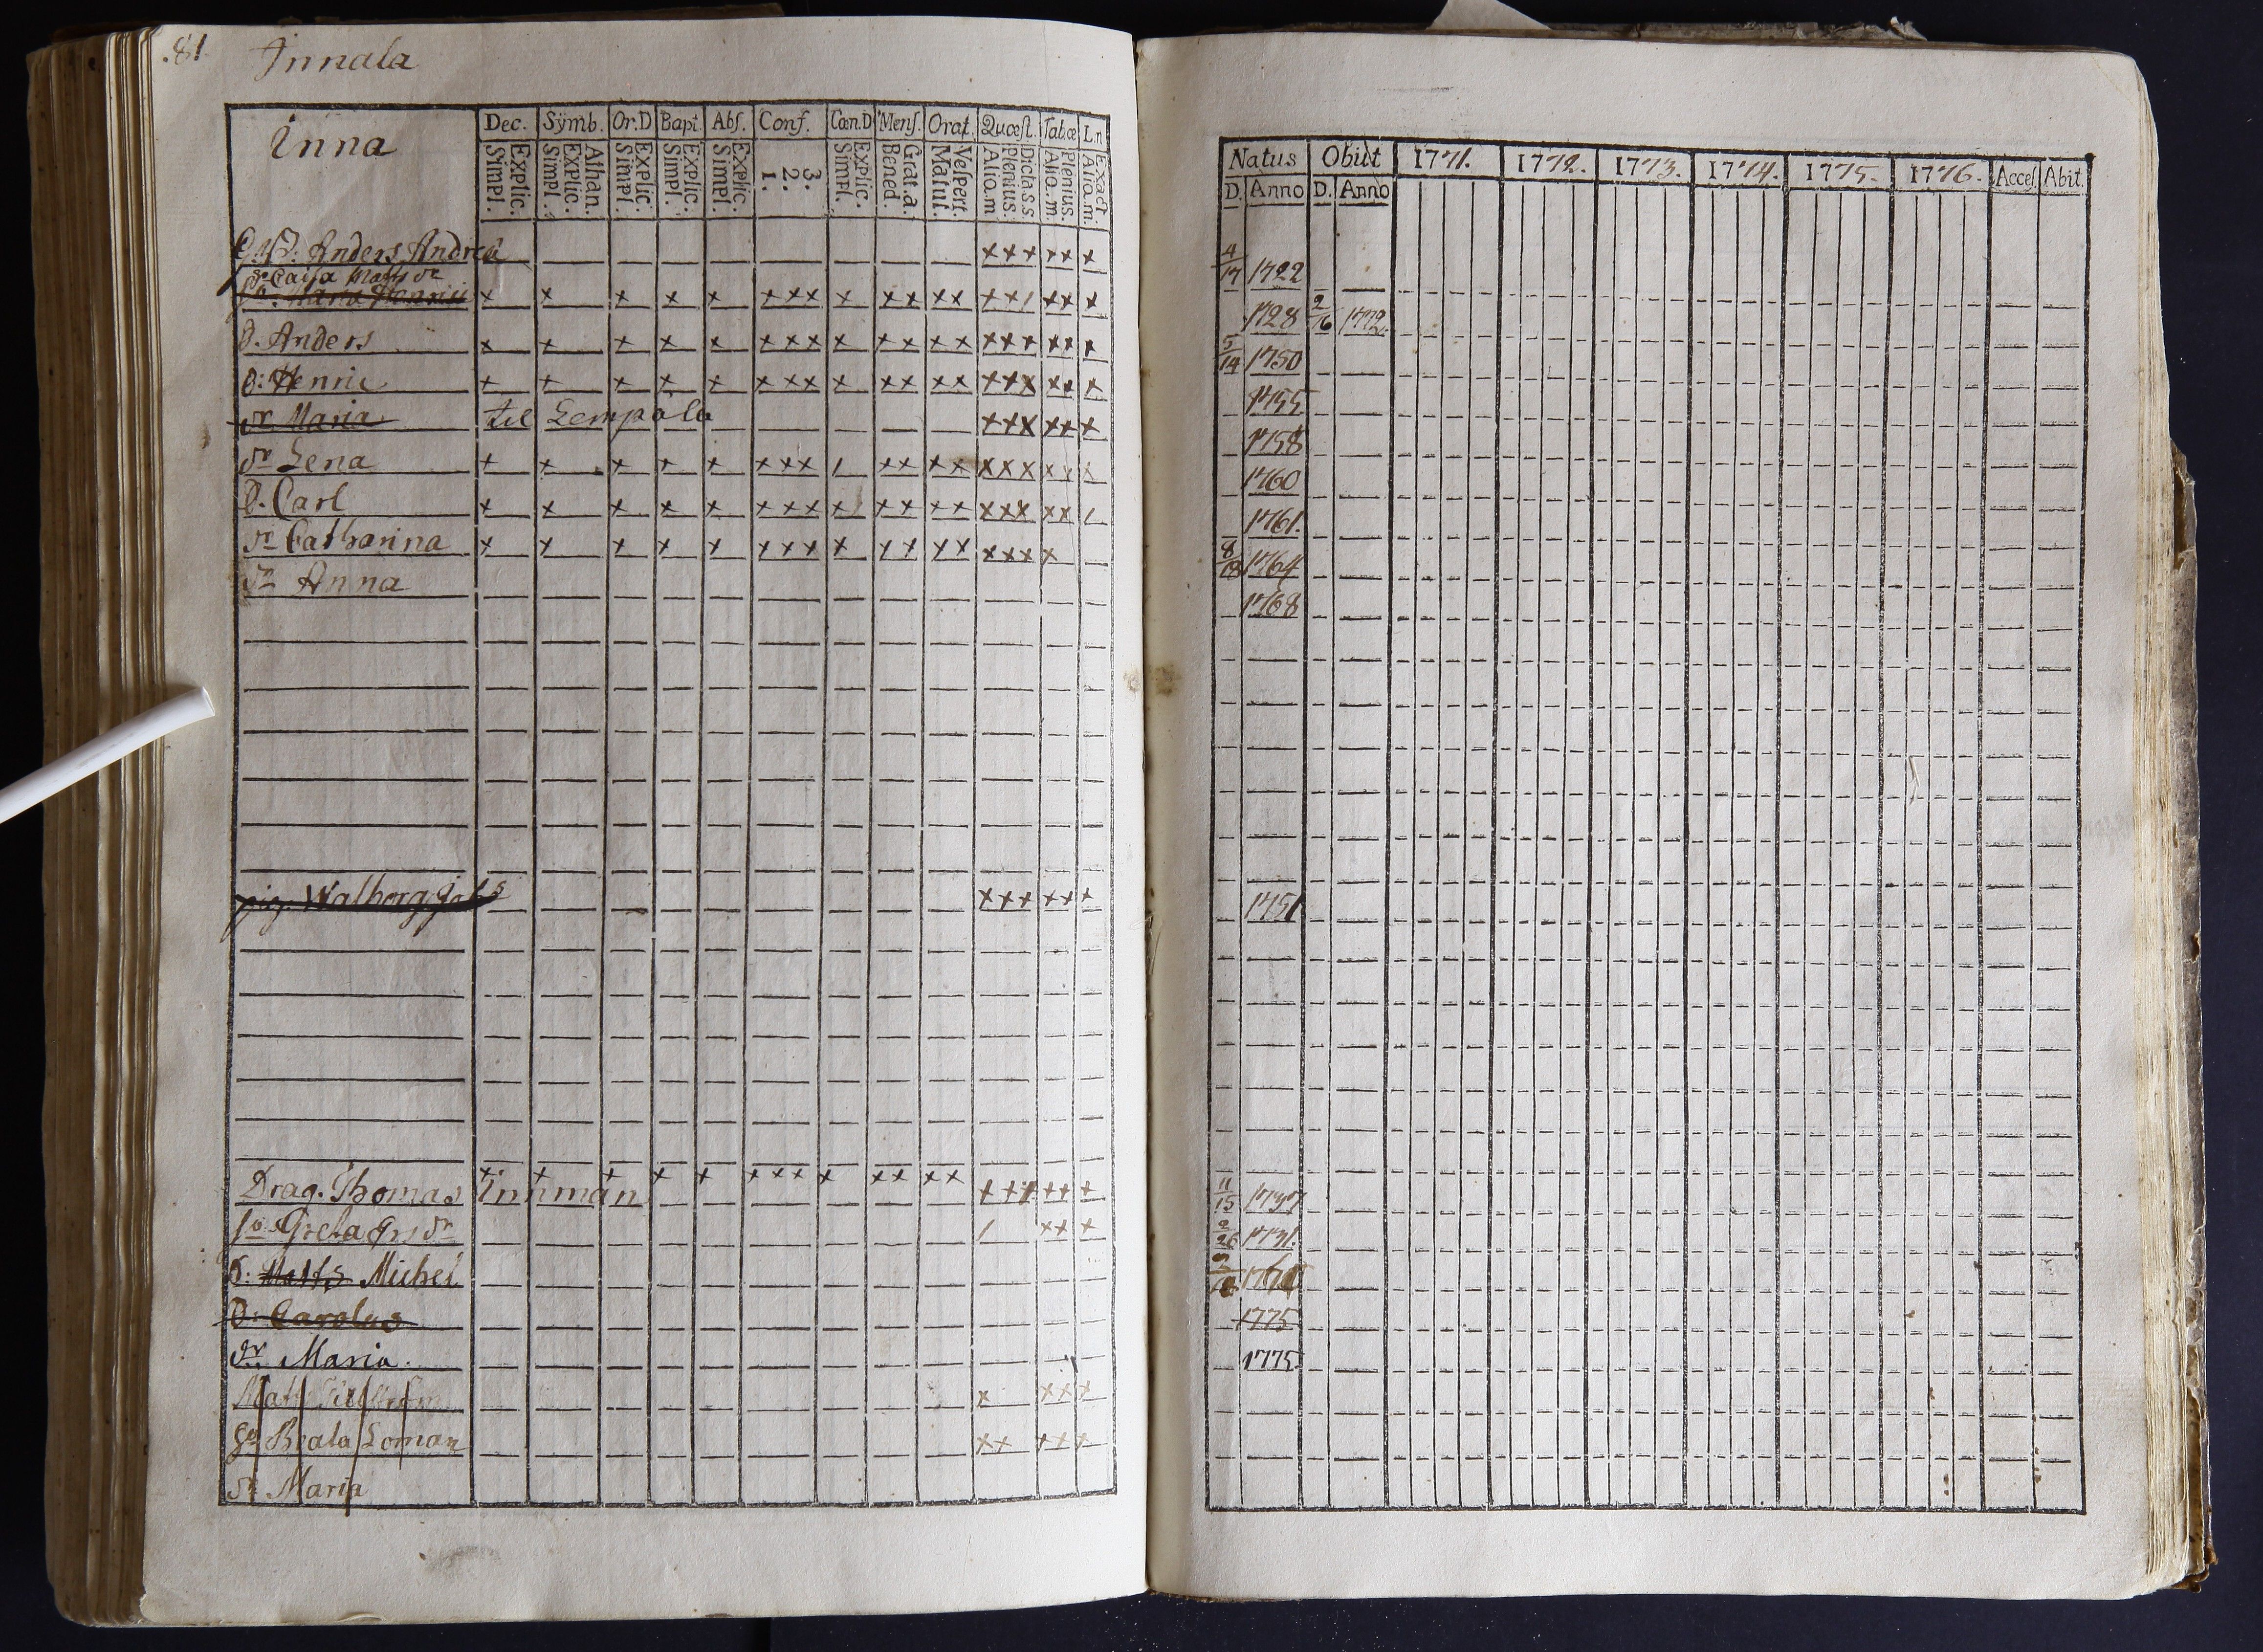 81.
Innala
Inna
Dec. Symb. Or.D Bapt. Abſ. Conf. Cœn.D Menſ. Orat. Quæſt. Tabæ L.n
Explic. Simpl. Athan. Explic. Simpl. Explic. Simpl. Explic. Simpl. Explic. Simpl. 3. 2. 1. Explic. Simpl. Grat.a. Bened. Veſpert. Matut. Dicta.s.s Plenius. Aliq.m Plenius. Aliq.m. Exact Aliq.m.
Anders Andreæ
Caisa Matts dr
Maria Henrici x x x x x xxx x xx xx xx/ xx x
S. Anders x x x x x xxx x xx xx xxx xx x
S: Henric x x x x x xxx x xx xx xxx xx x
dr Maria til Lempala xxx xx x
dr Lena x x x x x xxx / xx xx xxx xx x
S. Carl x x x x x xxx x xx xx xxx xx /
dr Catharina x x x x x xxx x xx xx xxx x
dr Anna
pig. Walborg xxx xx x
Drag. Thomas Innman x x x x x xxx x xx xx xxx xx x
Greta dr / xx x
S: Matts Michel
S: Carolus
dr Maria.
Matts x xx x
Beata Loman xx xx x
dr Maria
Natus Obiit 1771. 1772. 1773. 1774. 1775. 1776. Acceſ. Abit.
D. Anno D. Anno
4/17 1722
1728 2/16 1772.
5/14 1750
1755
1758
1760
1761.
8/18 1764
1768
1751
11/15 1737
2/26 1731.
1775
1775